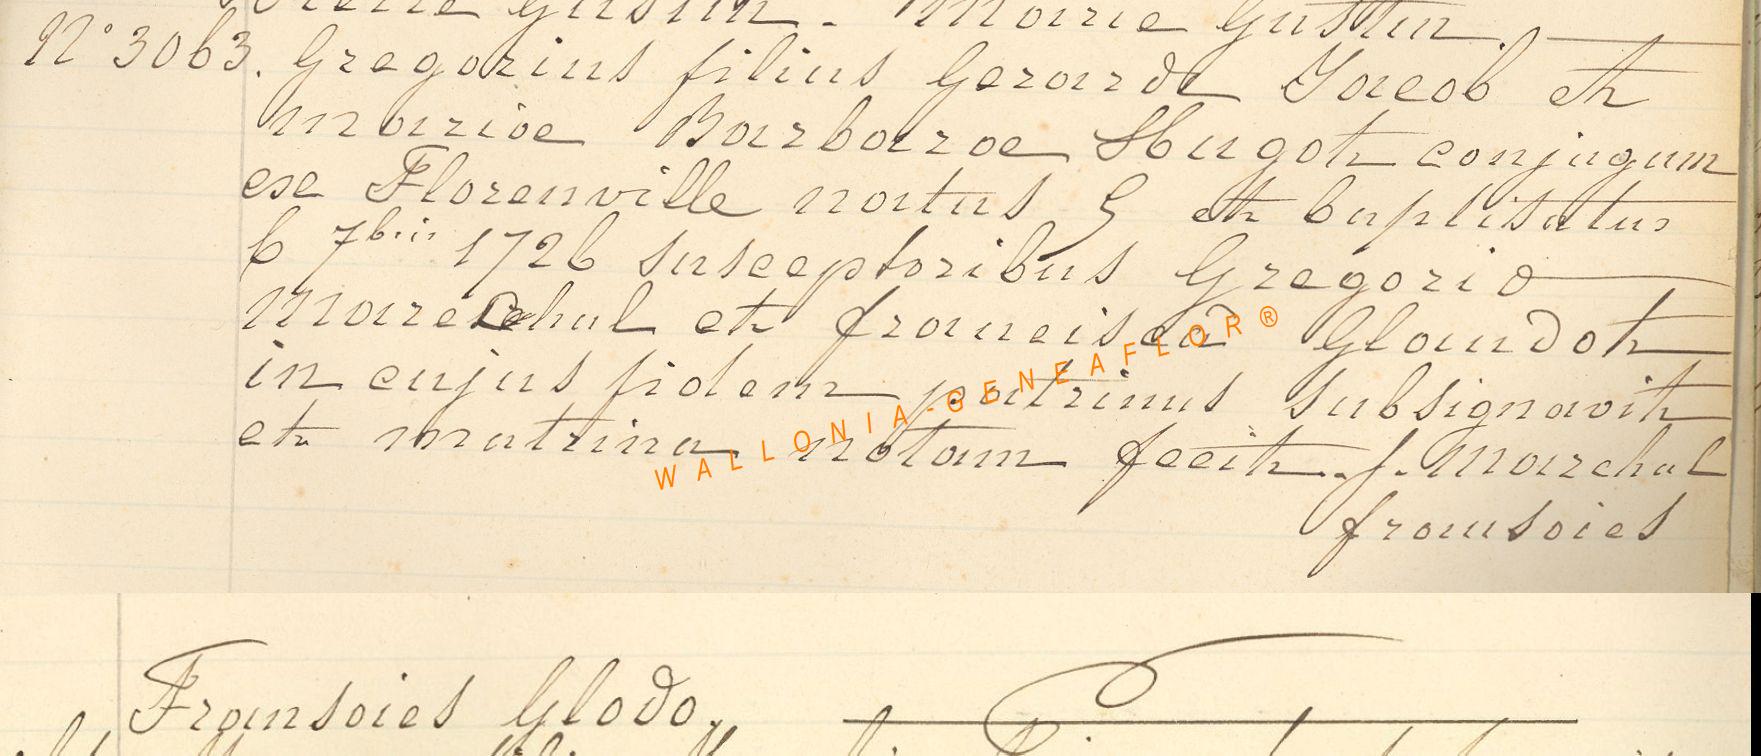 Pierre Gustin. Marie Gustin.
N° 3063. Gregorius filius Gerardi Jacob et
mariae Barbarae Hugot conjugum
ex Florenville natus 5 et baptisatus
6 7bris 1726 susceptoribus Gregorio
Marechal et francisca Glaudot
in cujus fidem patrinus subsignavit
et matrina notam fecit. J. Marchal
fransoies
WALLONIA-GENEAFLOR®
Fransoies Glodo,